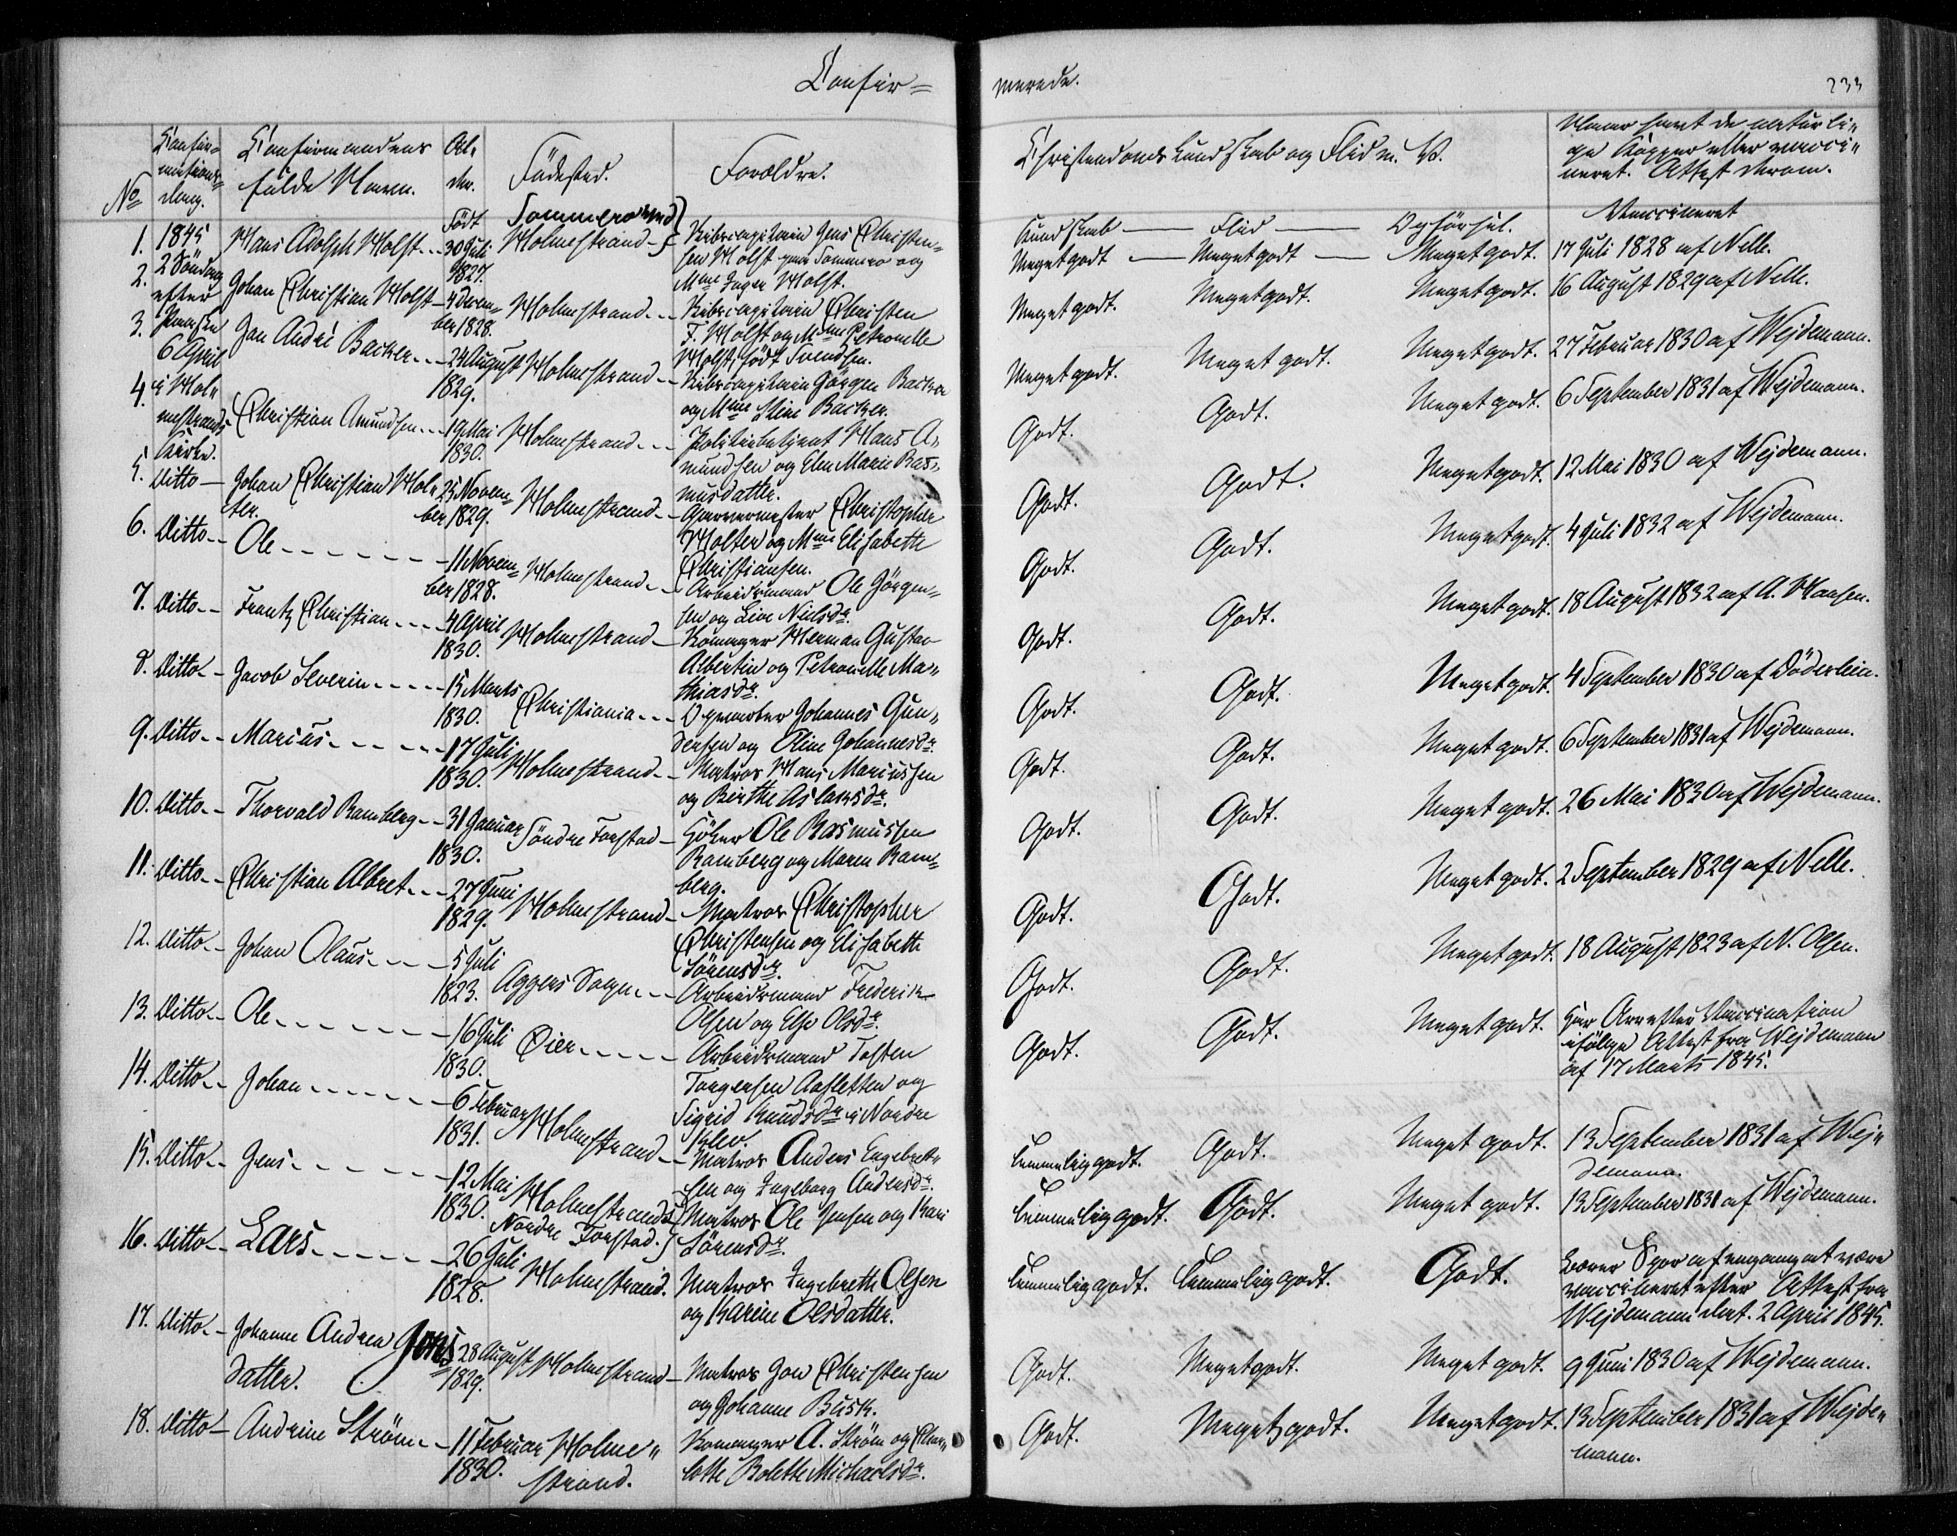 Confir=
merede.
233
No
Confir=
mations=
dag.
Confirmandens
fulde Navn.
Al=
der.
Födested.
Forældre.
Christendoms Kundskab og Flid m. V.
Naar havt de naturli=
ge Kopper eller vacci=
neret. Attest derom.
Födt
Kundskab — Flid — Opförsel.
Vaccineret
1. 1845
2 Söndag
efter
Paaske
6 April
i Hol=
mestrands
Kirke.
Hans Adolph Holst
30 Juli
1827.
Holmestrand
Skibscapitain Jens Christen=
sen Holst og
Mme Inger Holst.
Meget godt — Meget godt — Meget godt.
17 Juli 1828 af Nelle.
2.
Johan Christian Holst
4 Decem=
ber 1828.
Holmestrand
Skibscapitain Christen
F. Holst og Mme Petronelle
Holst, födt Svendsen.
Meget godt. Meget godt. Meget godt.
16 August 1829 af Nelle.
3.
Jan André Backer
24 August
1829.
Holmestrand
Skibscapitain Jörgen Backer
og Mme Stine Backer.
Meget godt. Meget godt. Meget godt.
27 Februar 1830 af Wejdemann.
4.
Christian Amundsen
19 Mai
1830.
Holmestrand
Politiebetjent Hans A=
mundsen og Elen Marie Ras=
musdatter.
Godt. Godt. Meget godt.
6 September 1831 af Wejdemann.
5. Ditto
Johan Christian Hol=
ter.
25 Novem=
ber 1829.
Holmestrand
Garvermester Christopher
Holter og Mme Elisabeth
Christiansen.
Godt. Godt. Meget godt.
12 Mai 1830 af Wejdemann.
6. Ditto
Ole
11 Novem=
ber 1828.
Holmestrand
Arbeidsmand Ole Jörgen=
sen og Live Nielsdr.
Godt. Godt. Meget godt.
4 Juli 1832 af Wejdemann.
7. Ditto
Frantz Christian
4 April
1830.
Holmestrand
Skomager Herman Gustav
Albertin og Petronelle Ma=
thiasdr.
Godt. Godt. Meget godt.
18 August 1832 af A. Hansen.
8. Ditto
Jacob Severin
15 Marts
1830.
Christiania
Opvarter Johannes Gun=
dersen og Oline Johannesdr.
Godt. Godt. Meget godt.
4 September 1830 af Döderlein.
9. Ditto
Marius
17 Juli
1830.
Holmestrand
Matros Hans Mariussen
og Birthe Aslaksdr.
Godt. Godt. Meget godt.
6 September 1831 af Wejdemann.
10. Ditto
Thorvald Ramberg
31 Januar
1830.
Söndre Forstad
Höker Ole Rasmussen
Ramberg og Maren Ram=
berg.
Godt. Godt. Meget godt.
26 Mai 1830 af Wejdemann.
11. Ditto
Christian Albret
27 Juni
1829.
Holmestrand
Matros Christopher
Christensen og Elisabeth
Sörensdr.
Godt. Godt. Meget godt.
2 September 1829 af Nelle.
12. Ditto
Johan Olaus
5 Juli
1823.
Aggers Sogn
Arbeidsmand Frederik
Olsen og Else Olsdr.
Godt. Godt. Meget godt.
18 August 1823 af N. Olsen.
13. Ditto
Ole
16 Juli
1830.
Øier
Arbeidsmand Tosten
Torgersen Aasletten og
Sigrid Knudsdr i Nordre
Klev.
Godt. Godt. Meget godt.
har Ar efter Vaccination
ifölge Attest fra Wejdemann
af 17 Marts 1845.
14. Ditto
Johan
6 Februar
1831.
Holmestrand
Matros Anders Engebret=
sen og Ingeborg Andersdr.
Temmelig godt. Godt. Meget godt.
13 September 1831 af Wej=
demann.
15. Ditto
Jens
12 Mai
1830.
Holmestrands
Nordre Forstad.
Matros Ole Jensen og Kari
Sörensdr.
Temmelig godt. Godt. Meget godt.
13 September 1831 af Wejdemann.
16. Ditto
Lars
26 Juli
1828.
Holmestrand.
Matros Ingebreth Olsen
og Karine Olsdatter.
Temmelig godt. Temmelig godt. Godt.
bærer Spor af engang at være
vaccineret efter Attest fra
Wejdemann dat. 2 April 1845.
17. Ditto
Johanne Andrea Jons=
datter.
28 August
1829.
Holmestrand
Matros Jon Christensen
og Johanne Busk.
Godt. Meget godt. Meget godt.
9 Juni 1830 af Wejdemann.
18. Ditto
Andrine Ström
11 Februar
1830.
Holme=
strand.
Skomager A. Ström og Char=
lotte Bolette Michaelsdr.
Godt. Meget godt. Meget godt.
13 September 1831 af Wejde=
mann.